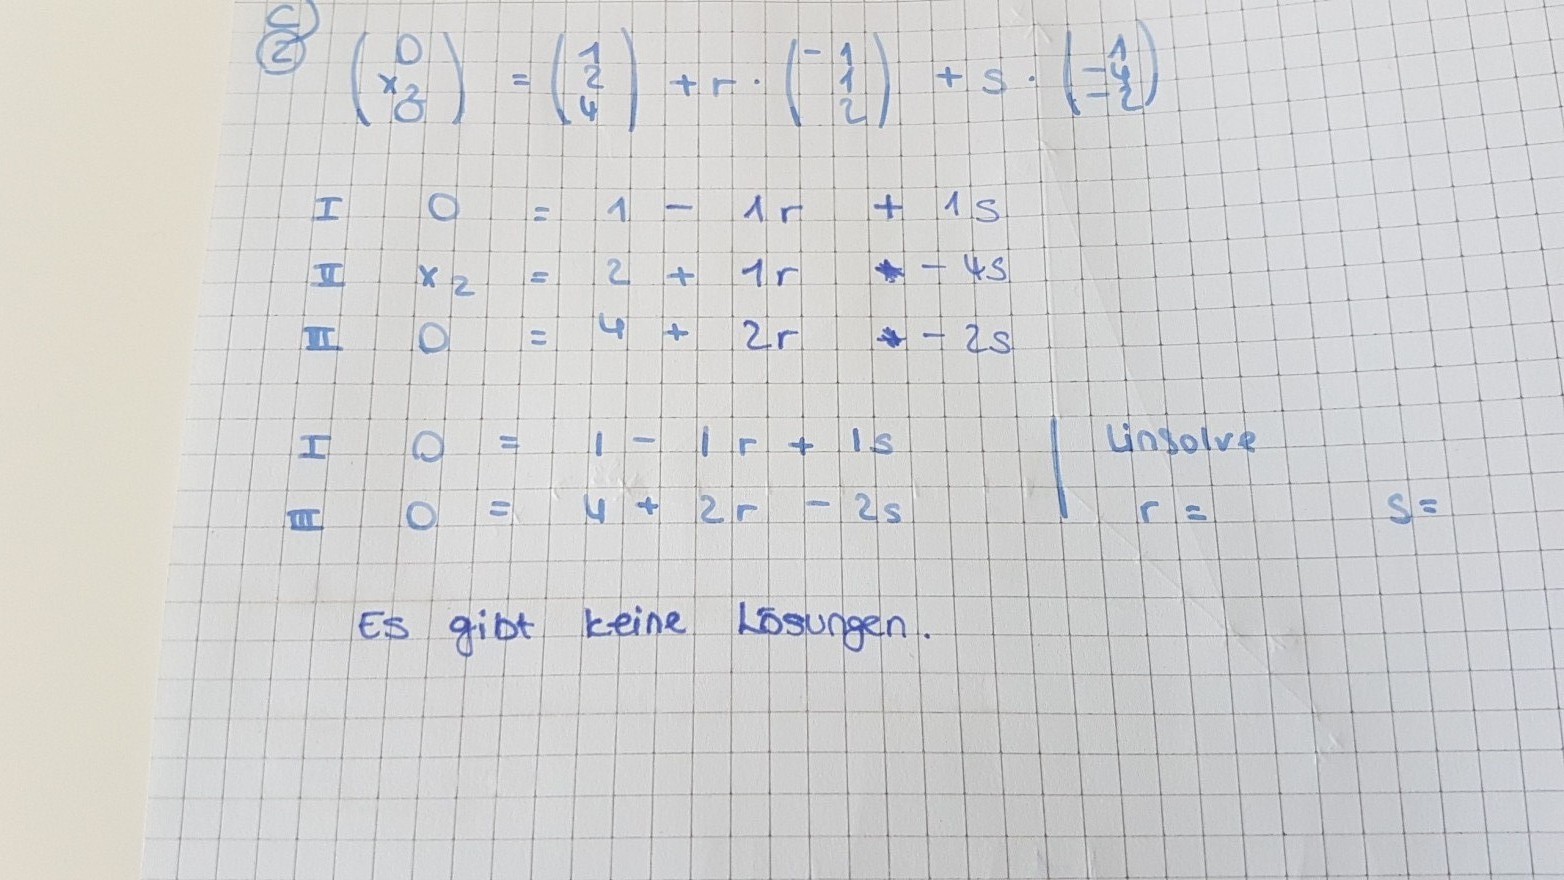 c)
② (0 x₂ 0) = (1 2 4) + r · (-1 1 2) + s · (1 -4 -2)
I 0 = 1 - 1r + 1s
II x₂ = 2 + 1r - 4s
III 0 = 4 + 2r - 2s
I 0 = 1 - 1r + 1s | Linsolve
III 0 = 4 + 2r - 2s | r = s =
Es gibt keine Lösungen.